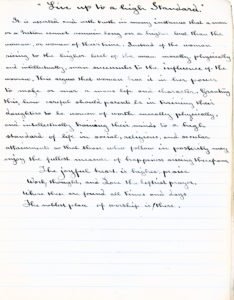 "Live up to a high Standard."
It is asserted and will truth in many instances that a man
or a Nation cannot remain long on a higher level than the
woman, or women of their time. Instead of the woman
rising to the higher level of the man usually physically
and intellectually, man succumbs to the influence of the
woman. It is agreed that woman has it in her power
to make or mar a man's life and character. Granting
this, how careful should parents be in training their
daughters to be women of worth morally, physically,
and intellectually training their minds to a high
standard of life in social, religious and secular
attainments so that those who follow in posterity may
enjoy the fullest measure of happiness arising therefrom.
The joyful heart is highest praise
Work thought, and Love the loftiest prayer,
Where these are found all times and days
The noblest place of worship is there.